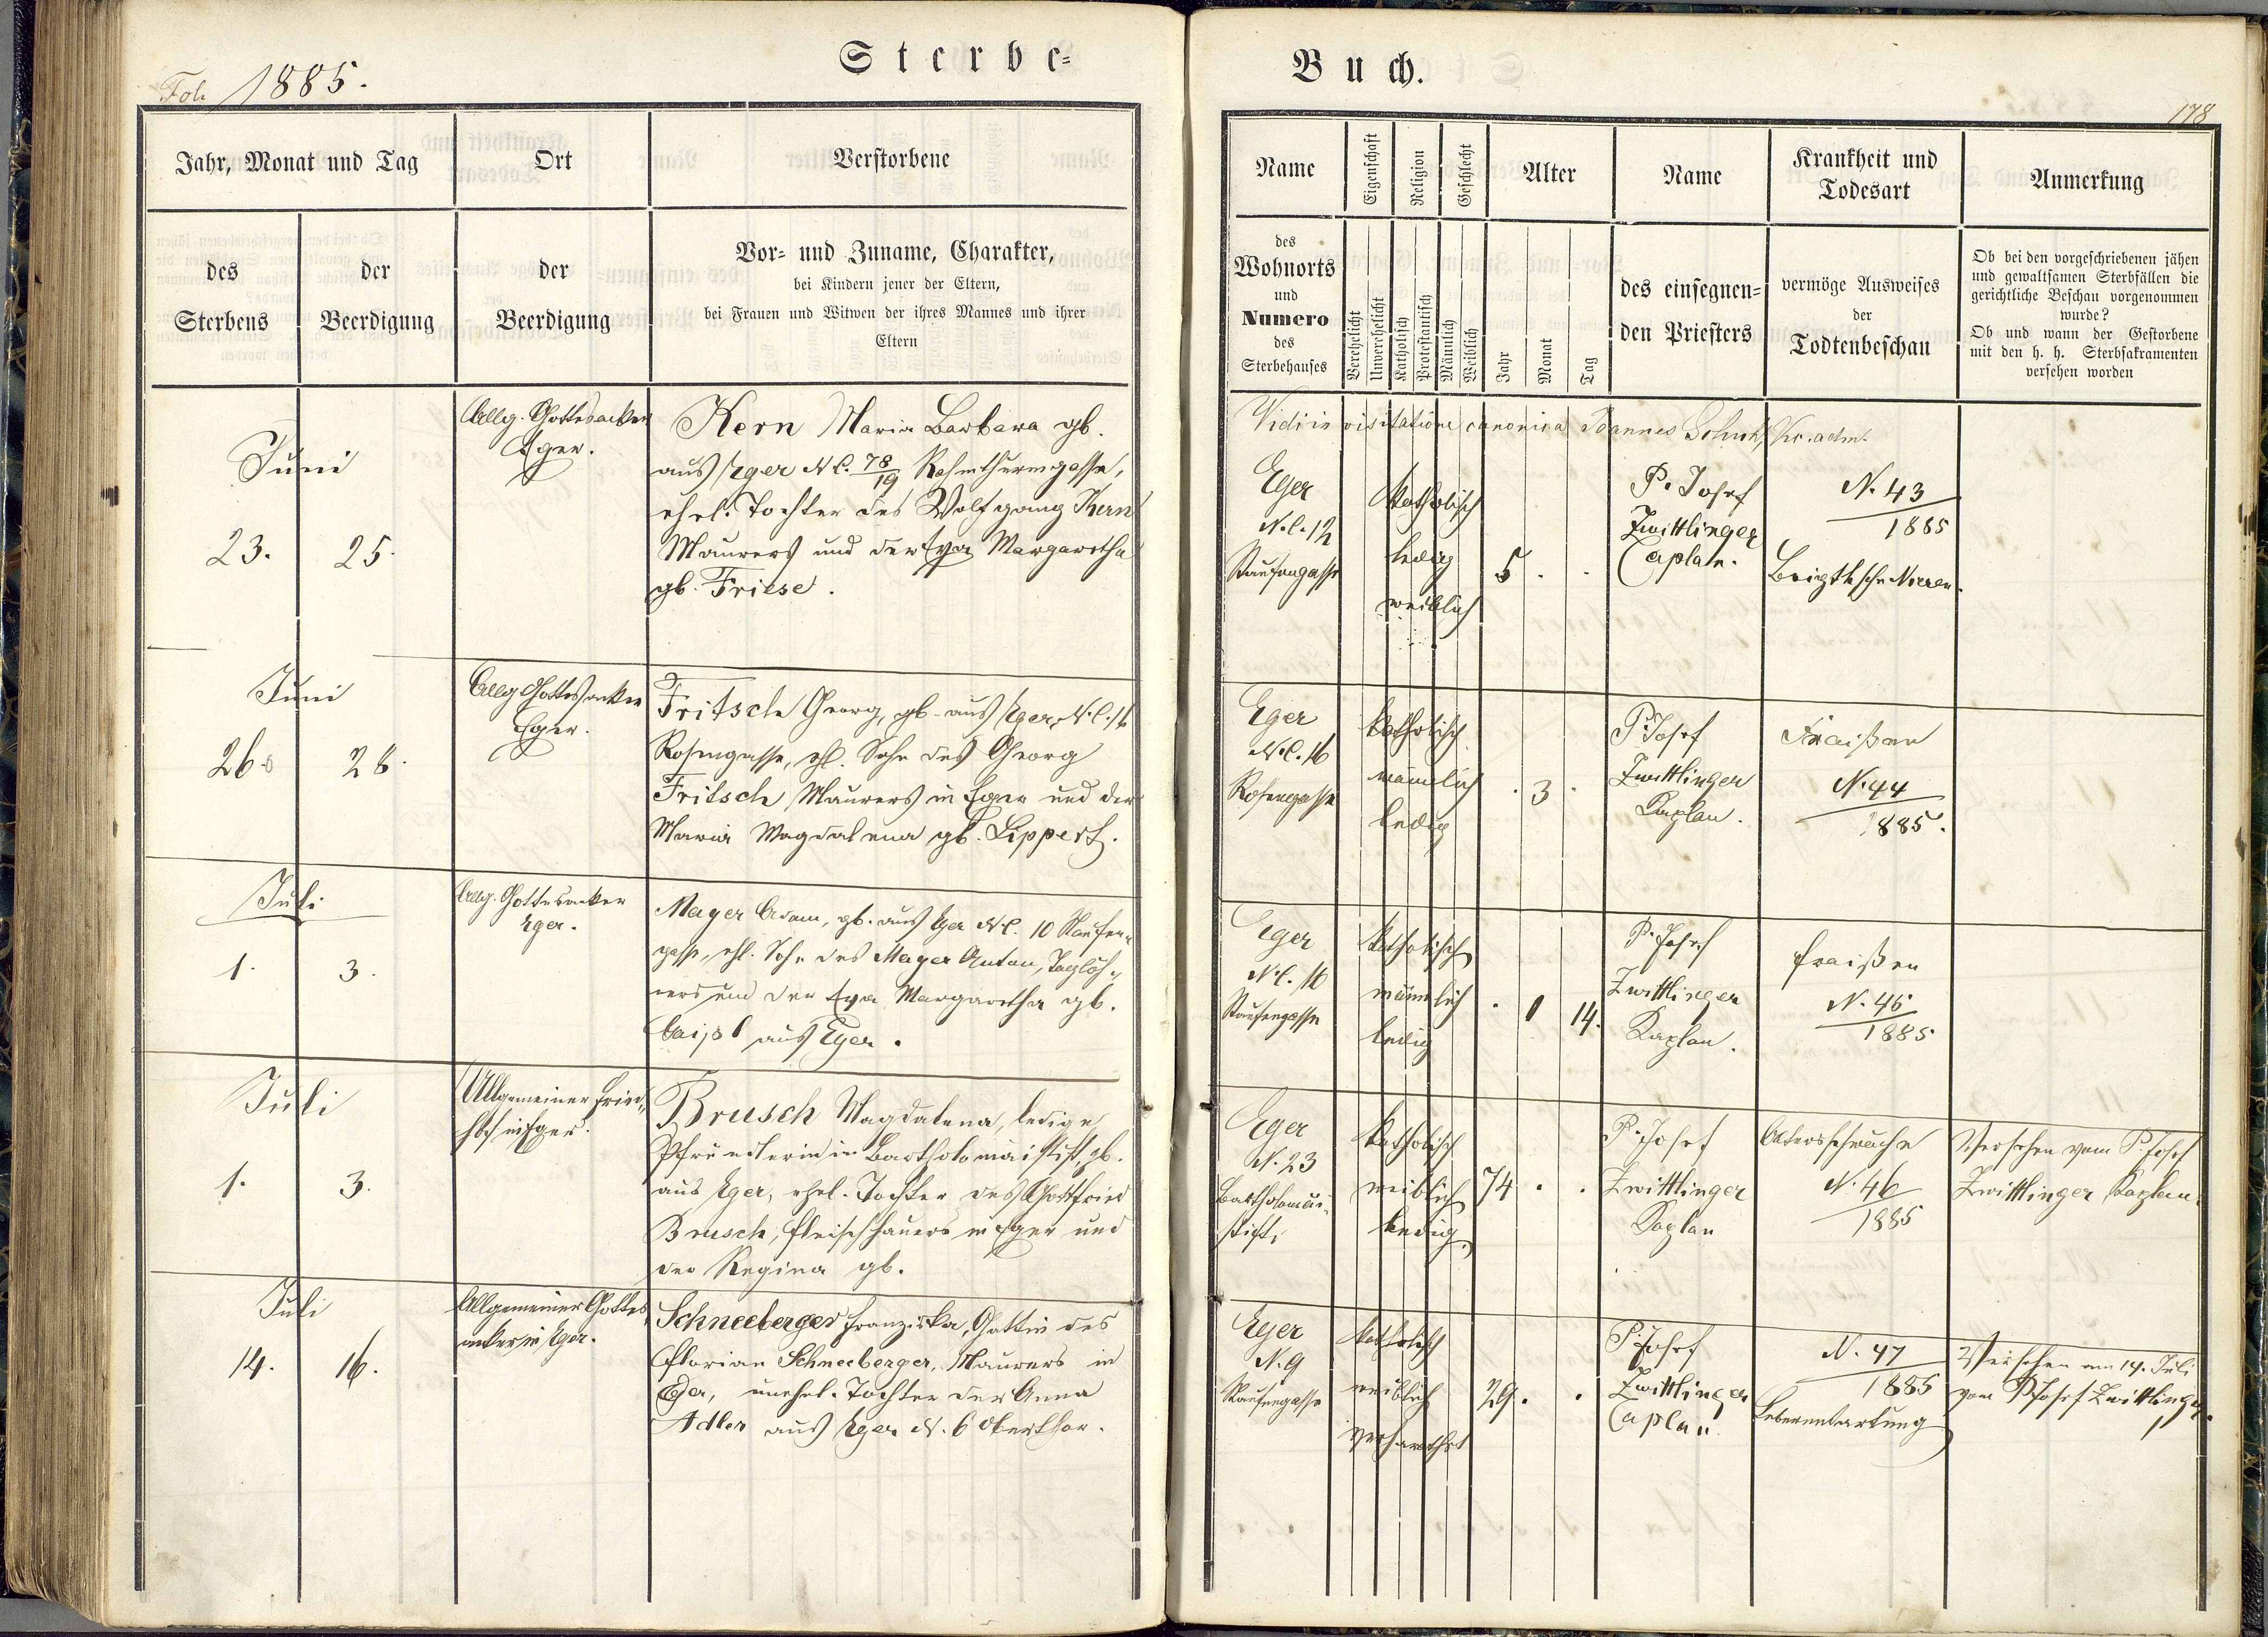 Sterbe-
Fol. 1885.
Jahr, Monat und Tag
Ort
Verstorbene
des
Sterbens
der
Beerdigung
der
Beerdigung
Vor- und Zuname, Charakter,
bei Kindern jener der Eltern,
bei Frauen und Witwen der ihres Mannes und ihrer
Eltern
Juni
23.
25.
Allg. Gottesacker
Eger.
Kern Maria Barbara gb.
aus Eger N C. 78/19
ehel. Tochter des Wolfgang Kern
Maurers und der Eva Margaretha
gb. Friese.
Juni
26.
28.
Allg Gottesacker
Eger.
Fritsch Georg, gb. aus Eger, N. C. 16
Rosengasse, ehl. Sohn des Georg
Fritsch Maurers in Eger und der
Maria Magdalena gb. Lippert.
Juli
1.
3.
Allg. Gottesacker
Eger.
Mayer Adam, gb. aus Eger N C. 10 Staufen-
gasse, ehl. Sohn des Mayer Anton, Taglöh-
ners und der Eva Margaretha gb.
aus Eger.
Juli
1.
3.
Allgemeiner Fried-
hof in Eger.
Brusch Magdalena, ledige
Pfründlerin in Bartholomäistift, gb.
aus Eger, ehel. Tochter des Gottfried
Brusch, Fleischhauers in Eger und
der Regina gb.
Juli
14.
16.
Allgemeiner Gottes
acker in Eger.
Schneeberger Franziska, Gattin des
Florian Schneeberger, Maurers in
Eger, unehel. Tochter der Anna
Adler aus Eger N. 6 Oberthor.
Buch.
178
Name
Eigenschaft
Religion
Geschlecht
Alter
Name
Krankheit und
Todesart
Anmerkung
des
Wohnorts
und
Numero
des
Sterbehauses
Verehelicht
Unverehelicht
Katholisch
Protestantisch
Männlich
Weiblich
Jahr
Monat
Tag
des einsegnen-
den Priesters
vermöge Ausweises
der
Todtenbeschau
Ob bei den vorgeschriebenen jähen
und gewaltsamen Sterbfällen die
gerichtliche Beschau vorgenommen
wurde?
Ob und wann der Gestorbene
mit den h. h. Sterbsakramenten
versehen worden
Vidi in visitatione canonica Joannes Schuh, Vic. adm.
Eger
N. C. 12
Staufengasse
katholisch
ledig
weiblich
5 . .
P. Josef
Zwittlinger
Caplan.
N. 43
1885
Brigthsche Nieren.
Eger
N. C. 16
Rosengasse
katholisch
männlich
ledig
. 3 .
P Josef
Zwittlinger
Kaplan.
Fraißen
N. 44
1885.
Eger
N. C. 10
Staufengasse
katholisch
männlich
ledig
. 1 14.
P. Josef
Zwittlinger
Kaplan.
Fraißen
N. 45
1885
Eger
N. 23
Bartholomäi-
stift,
katholisch
weiblich
ledig.
74 . .
P. Josef
Zwittlinger
Kaplan
Altersschwäche
N. 46
1885
Versehen vom P. Josef
Zwittlinger Kaplan.
Eger
N. 9
Staufengasse
katholisch
weiblich
verheirathet
29. .
P. Josef
Zwittlinger
Caplan.
N. 47
1885
Leberentartung
Versehen am 14. Juli
vom P Josef Zwittlinger.